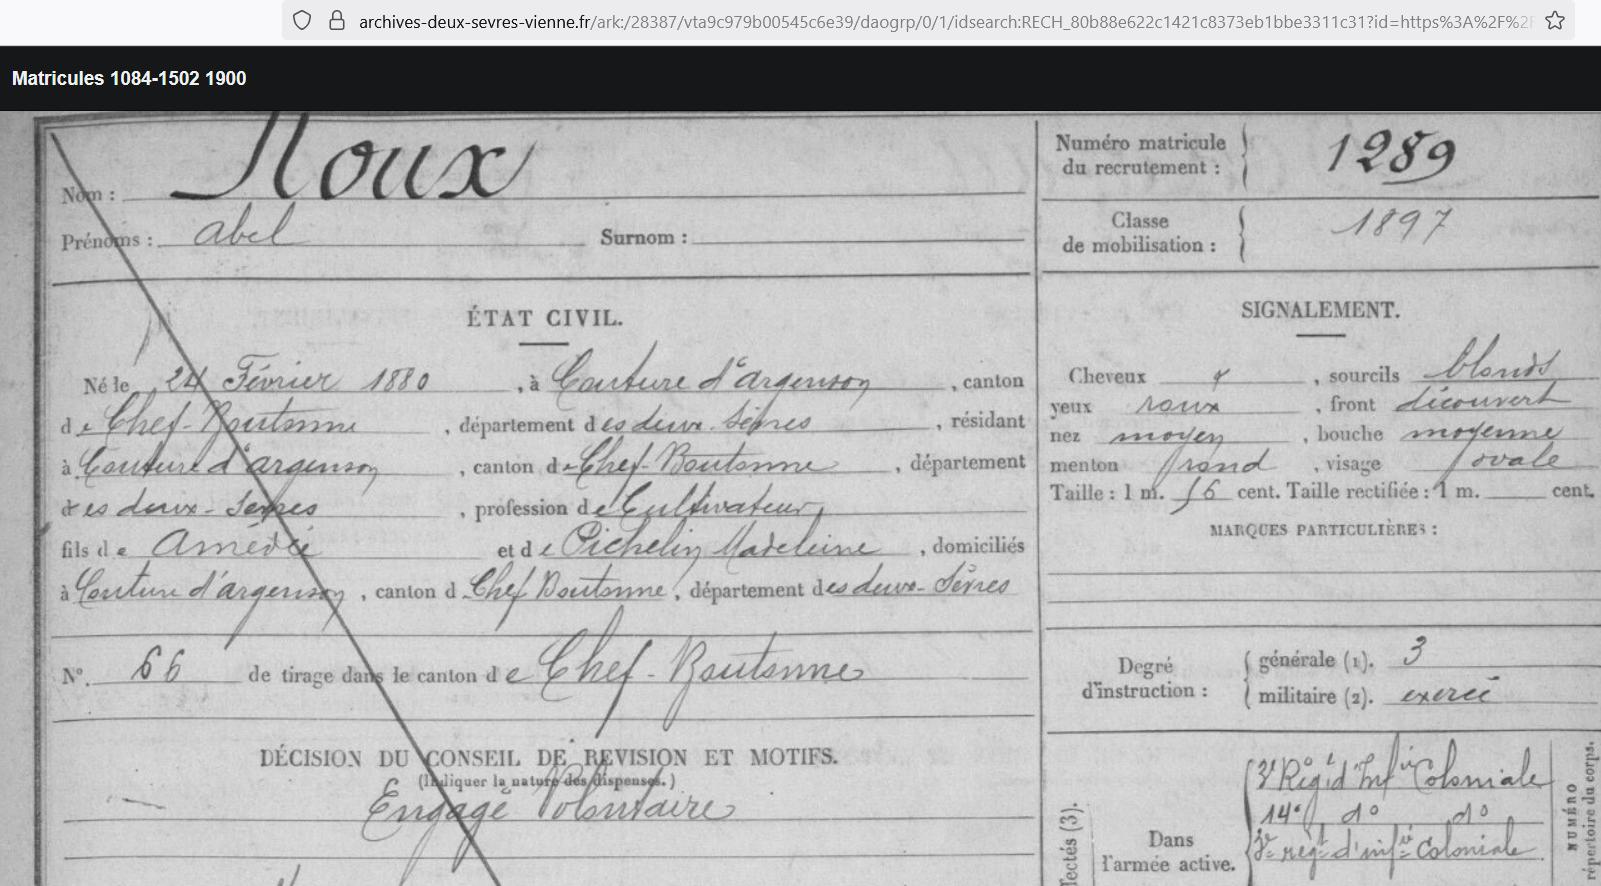 archives-deux-sevres-vienne.fr/ark:/28387/vta9c979b00545c6e39/daogrp/0/1/idsearch:RECH_80b88e622c1421c8373eb1bbe3311c31?id=https%3A%2F%2F
Matricules 1084-1502 1900
Nom : Roux
Prénoms : abel Surnom :
ÉTAT CIVIL.
Né le 24 Février 1880, à Couture d'argenson, canton
de Chef-Boutonne, département des deux-Sèvres, résidant
à Couture d'argenson, canton de Chef-Boutonne, département
des deux-Sèvres, profession de Cultivateur,
fils de Amédée et de Pichelin Madeleine, domiciliés
à Couture d'argenson, canton d Chef Boutonne, département des deux-Sèvres
N°. 66 de tirage dans le canton de Chef-Boutonne
DÉCISION DU CONSEIL DE REVISION ET MOTIFS.
(Indiquer la nature des dispenses.)
Engagé Volontaire
Numéro matricule
du recrutement : 1289
Classe
de mobilisation : 1897
SIGNALEMENT.
Cheveux , sourcils blonds
yeux roux, front découvert
nez moyen, bouche moyenne
menton rond, visage ovale
Taille : 1 m. 56 cent. Taille rectifiée : 1 m. cent.
MARQUES PARTICULIÈRES :
Degré
d'instruction :
générale (1). 3
militaire (2). exercé
Dans
l'armée active.
3e Régt d'Infie Coloniale
14e do do
3e régt d'infie Coloniale
NUMÉRO
répertoire du corps.